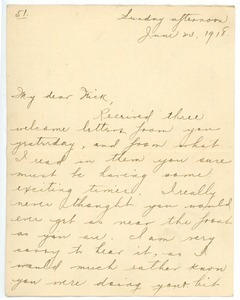 51.
Sunday afternoon
June 23, 1918
My dear Nick,
Received three
welcome letters from you
yesterday, and from what
I read in them you sure
must be having some
exciting times. I really
never thought you would
ever get so near the front
as you are. I am very
sorry to hear it, as I
would much rather know
you were doing your bit